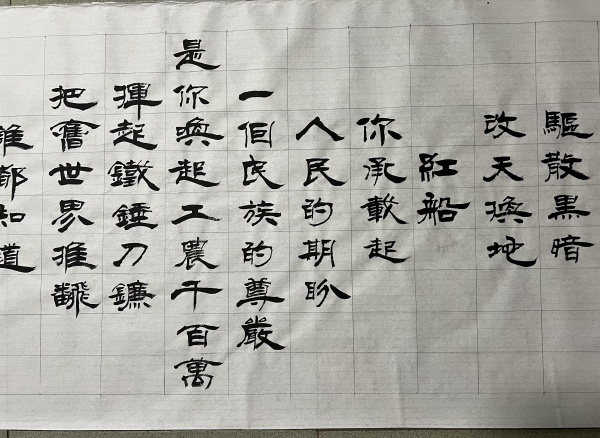 驅散黑暗
改天換地
紅船
你承載起
人民的期盼
一個民族的尊嚴
是你喚起工農千百萬
揮起鐵錘刀鐮
把舊世界推翻
誰都知道